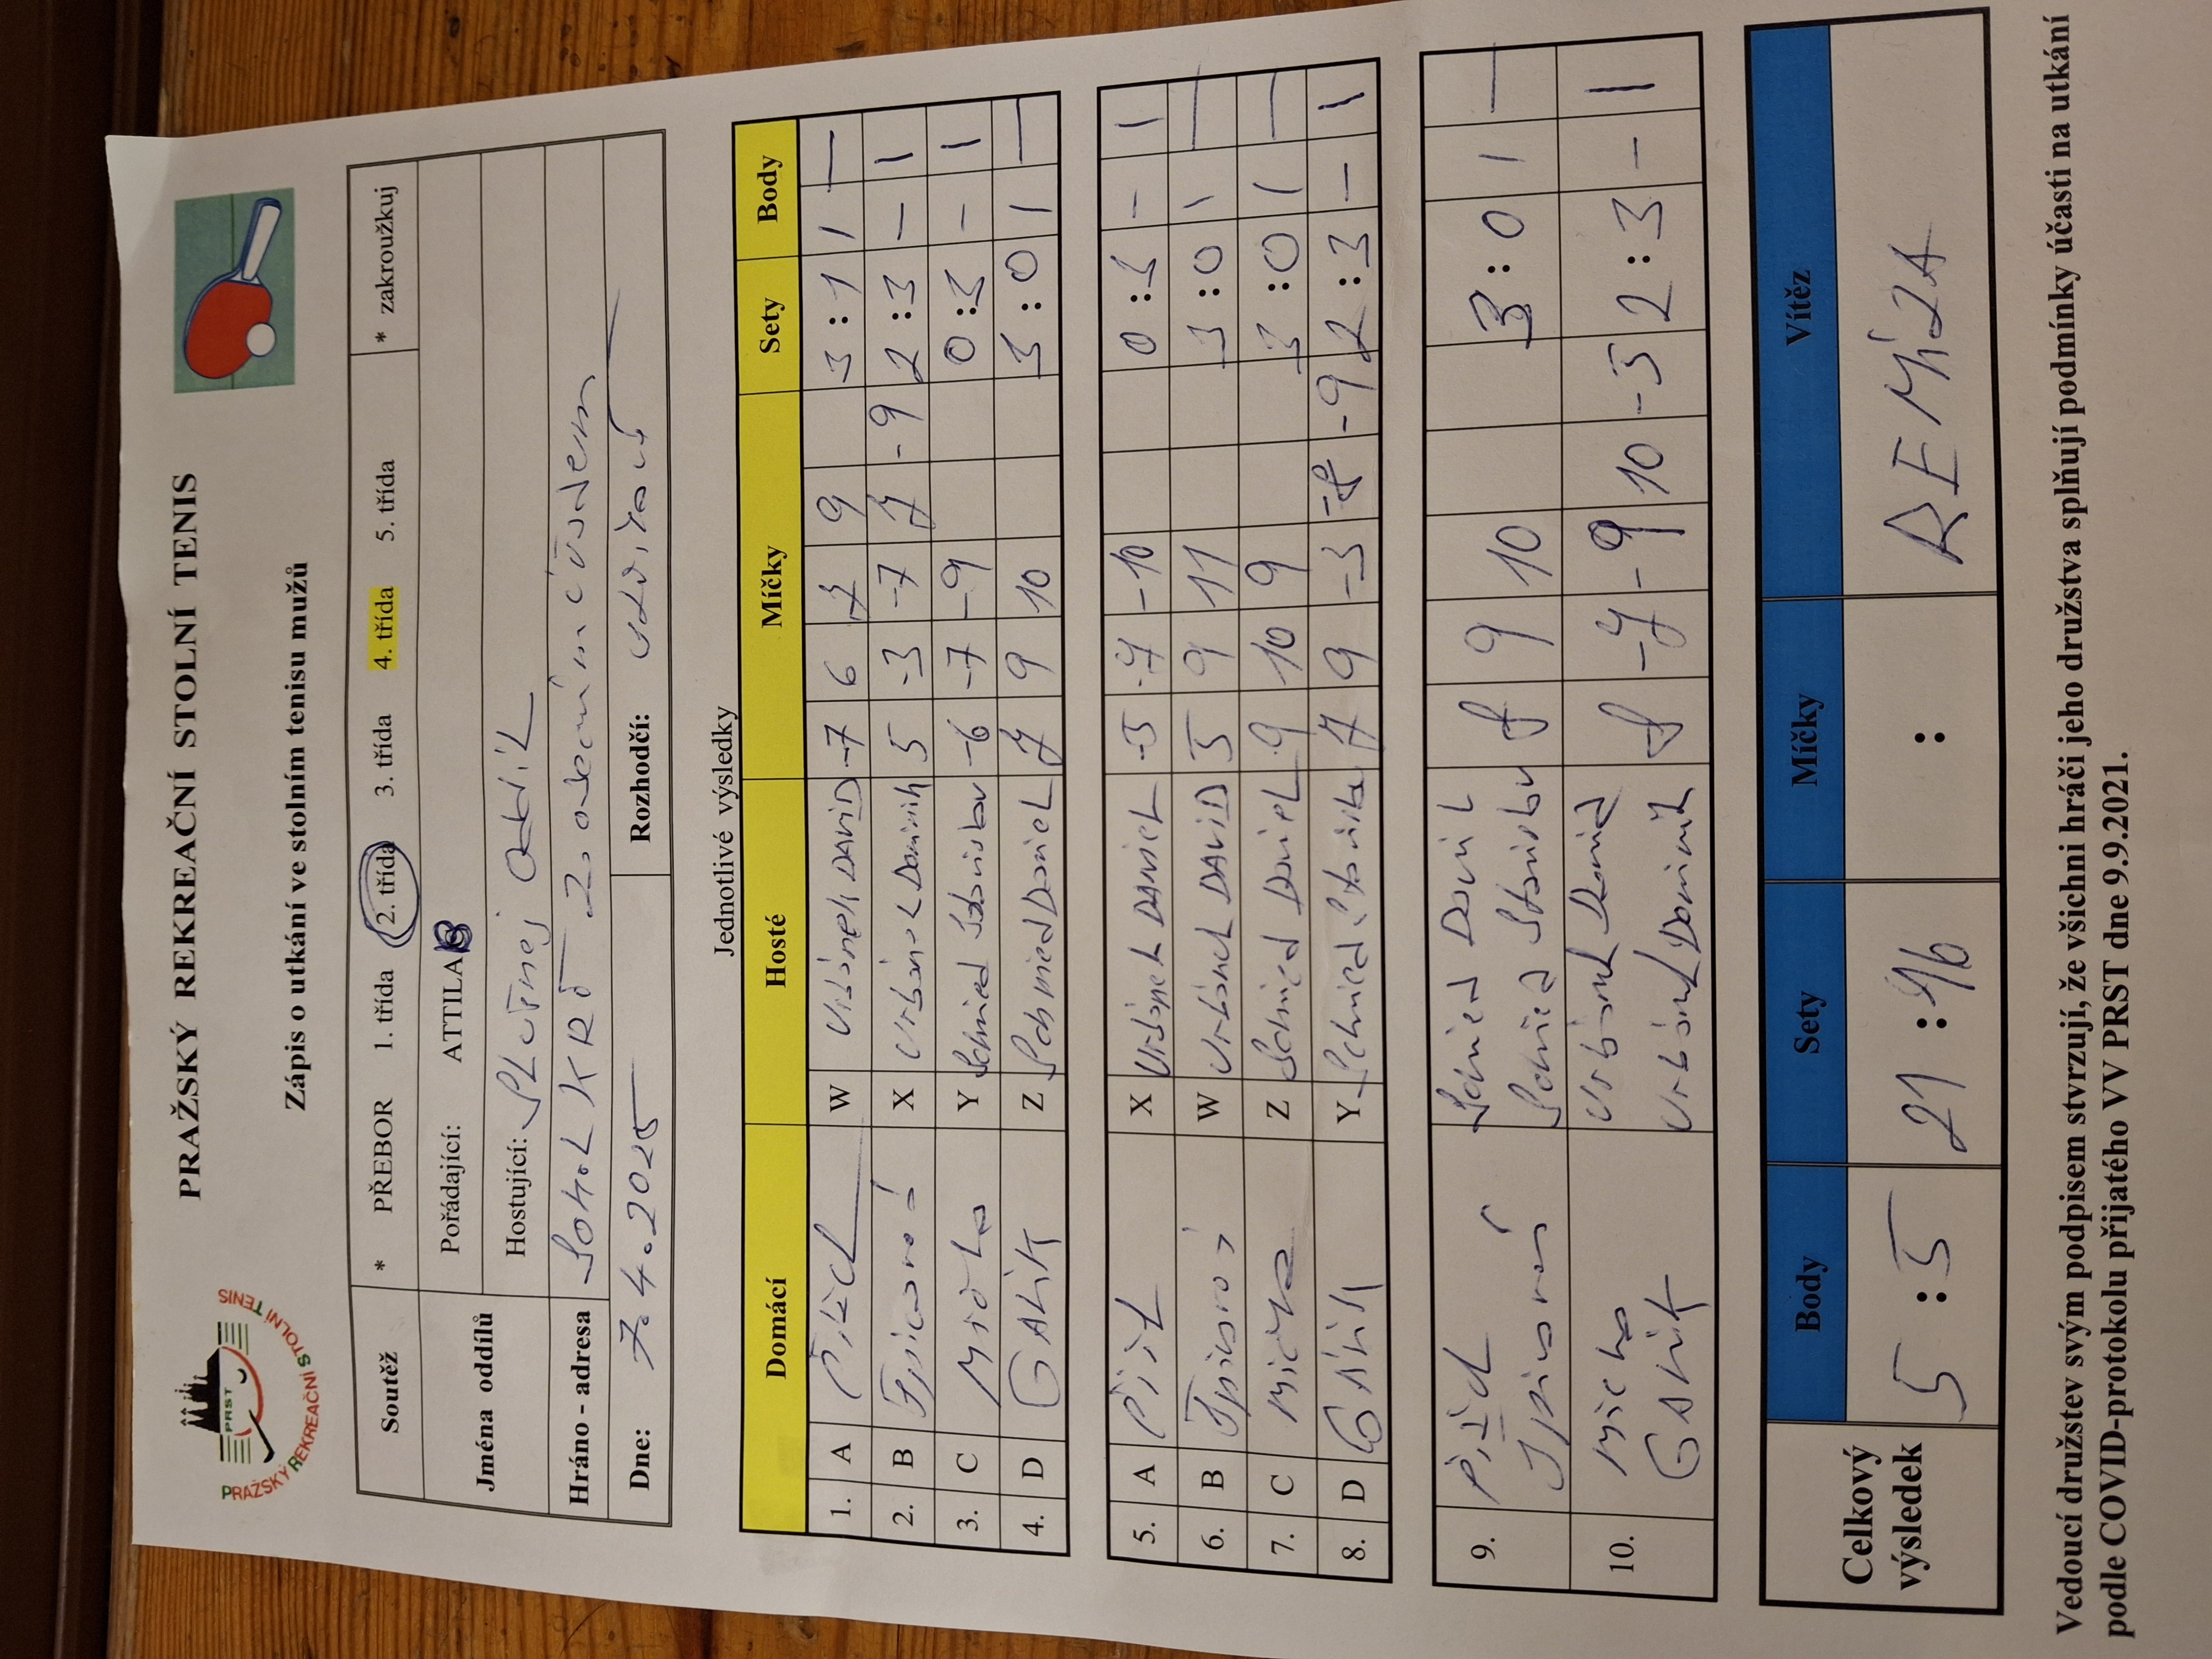 PRAŽSKÝ REKREAČNÍ STOLNÍ TENIS
PRST
PRAŽSKÝ REKREAČNÍ STOLNÍ TENIS
Zápis o utkání ve stolním tenisu mužů
Soutěž * PŘEBOR 1. třída 2. třída 3. třída 4. třída 5. třída * zakroužkuj
Jména oddílů Pořádající: ATTILA
Hostující:
Hráno - adresa SOKOL KRČ
Dne: 7.4.2025 Rozhodčí:
Jednotlivé výsledky
Domácí Hosté Míčky Sety Body
1. A W Urbánek DAVID -7 6 7 9 3 : 1 1 —
2. B X Urbánek Dominik 5 -3 -7 7 -9 2 : 3 — 1
3. C Micka Y Schmied -6 -7 -9 0 : 3 - 1
4. D GALIK Z Schmied Daniel 7 9 10 3 : 0 1 —
5. A X Urbánek -10 0 : 3 - 1
6. B W Urbánek DAVID 5 9 11 3 : 0 1 —
7. C Micka Z Schmied Daniel 9 10 9 3 : 0 1 —
8. D GALIK Y Schmied 7 9 -3 -8 -9 2 : 3 — 1
9. Schmied 8 9 10 3 : 0 1 —
Schmied
10. Micka Urbánek David 8 -9 10 -5 2 : 3 - 1
GALIK Urbánek Dominik
Celkový výsledek Body Sety Míčky Vítěz
5 : 5 21 : 16 : REMÍZA
Vedoucí družstev svým podpisem stvrzují, že všichni hráči jeho družstva splňují podmínky účasti na utkání
podle COVID-protokolu přijatého VV PRST dne 9.9.2021.